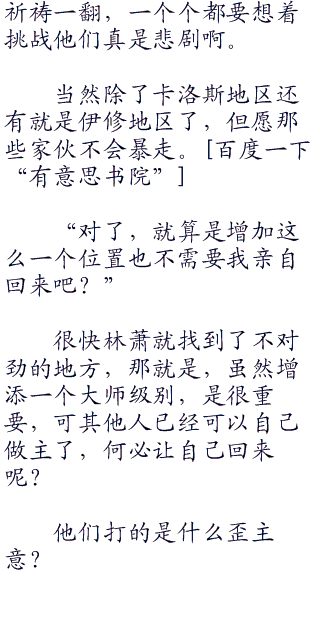 祈祷一翻，一个个都要想着
挑战他们真是悲剧啊。
当然除了卡洛斯地区还
有就是伊修地区了，但愿那
些家伙不会暴走。[百度一下
“有意思书院”]
“对了，就算是增加这
么一个位置也不需要我亲自
回来吧？”
很快林萧就找到了不对
劲的地方，那就是，虽然增
添一个大师级别，是很重
要，可其他人已经可以自己
做主了，何必让自己回来
呢？
他们打的是什么歪主
意？